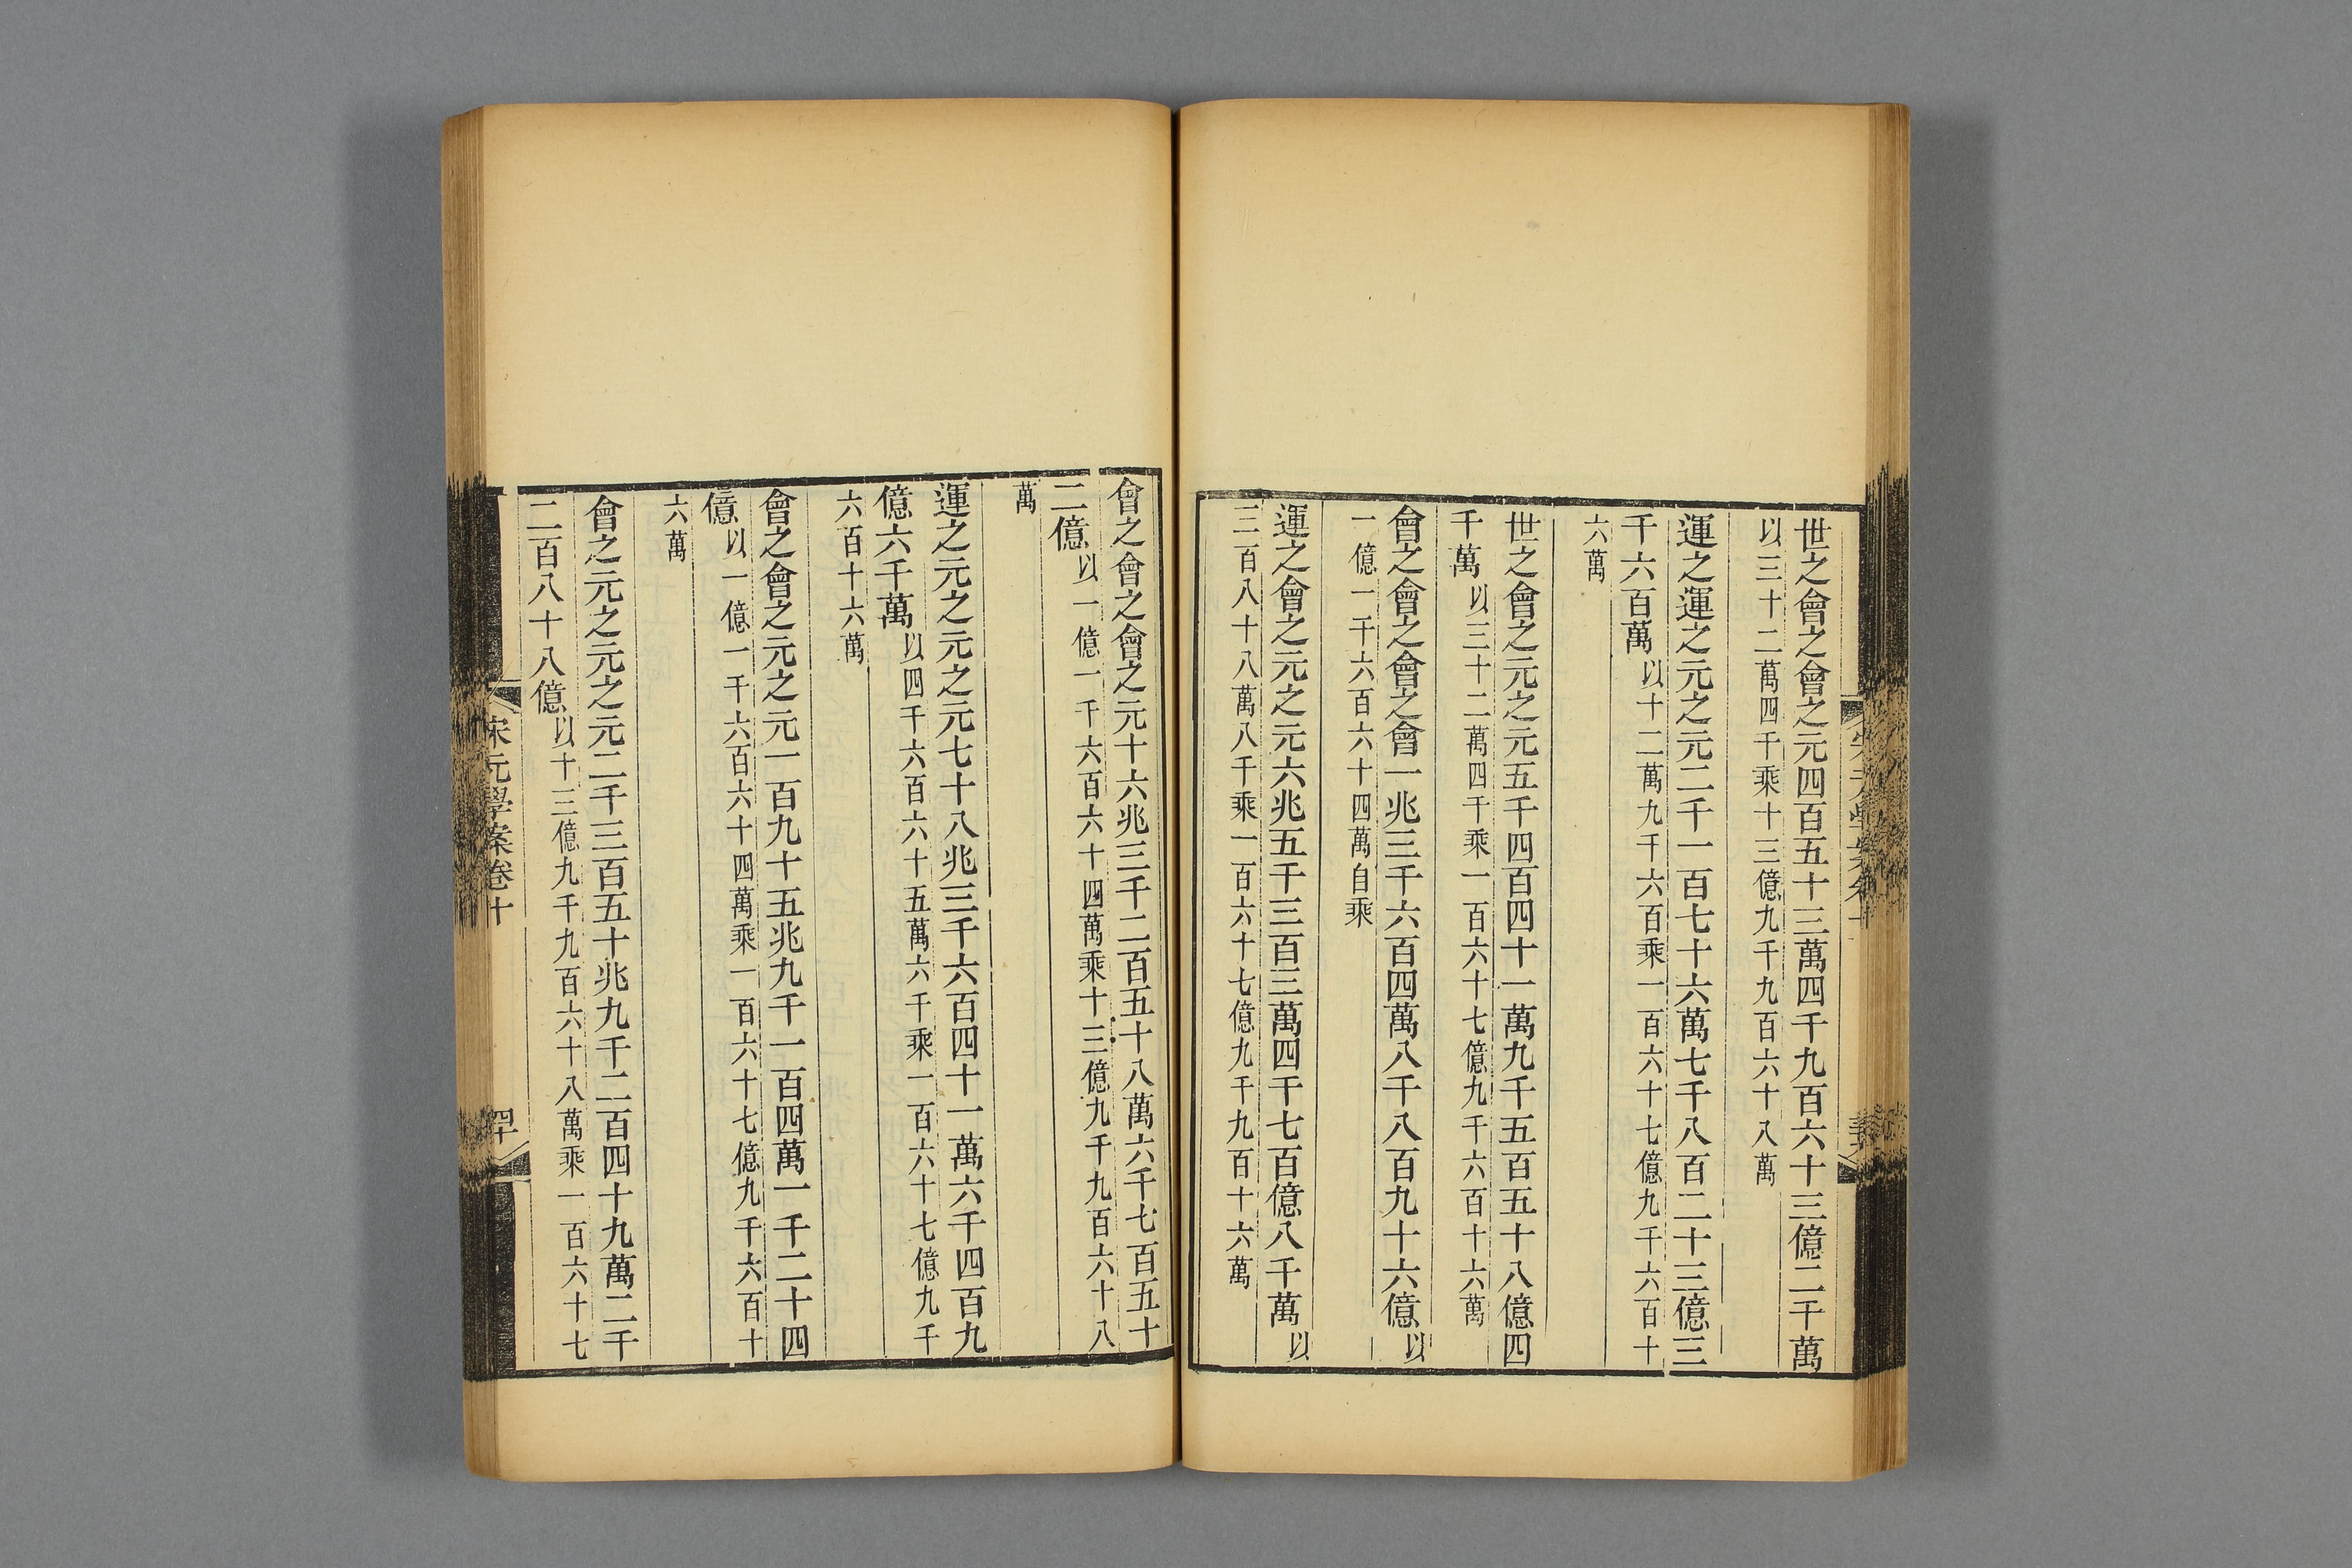 世之會之會之元四百五十三萬四千九百六十三億二千萬
以三十二萬四千乘十三億九千九百六十八萬
運之運之元之元二千一百七十六萬七千八百二十三億三
千六百萬以十二萬九千六百乘一百六十七億九千六百十
六萬
世之會之元之元五千四百四十一萬九千五百五十八億四
千萬以三十二萬四千乘一百六十七億九千六百十六萬
會之會之會之會一兆三千六百四萬八千八百九十六億以
一億一千六百六十四萬自乘
運之會之元之元六兆五千三百三萬四千七百億八千萬以
三百八十八萬八千乘一百六十七億九千九百十六萬
會之會之會之元十六兆三千二百五十八萬六千七百五十
二億以一億一千六百六十四萬乘十三億九千九百六十八
萬
運之元之元之元七十八兆三千六百四十一萬六千四百九
億六千萬以四千六百六十五萬六千乘一百六十七億九千
六百十六萬
會之會之元之元一百九十五兆九千一百四萬一千二十四
億以一億一千六百六十四萬乘一百六十七億九千六百十
六萬
會之元之元之元二千三百五十兆九千二百四十九萬二千
二百八十八億以十三億九千九百六十八萬乘一百六十七
宋元學案卷十
四十